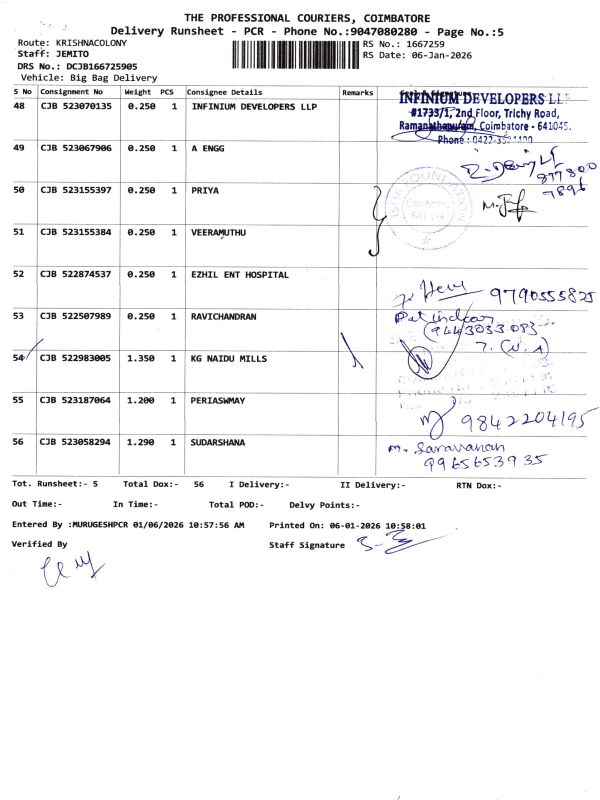 THE PROFESSIONAL COURIERS, COIMBATORE
Delivery Runsheet - PCR - Phone No.:9047080280 - Page No.:5
Route: KRISHNACOLONY
Staff: JEMITO
DRS No.: DCJB166725905
Vehicle: Big Bag Delivery
RS No.: 1667259
RS Date: 06-Jan-2026
S No Consignment No Weight PCS Consignee Details Remarks
48 CJB 523070135 0.250 1 INFINIUM DEVELOPERS LLP
INFINIUM DEVELOPERS LLP
#1733/1, 2nd Floor, Trichy Road,
Ramanathapuram, Coimbatore - 641045.
Phone : 0422-
49 CJB 523067906 0.250 1 A ENGG
877800
7896
50 CJB 523155397 0.250 1 PRIYA
51 CJB 523155384 0.250 1 VEERAMUTHU
52 CJB 522874537 0.250 1 EZHIL ENT HOSPITAL
9790555825
53 CJB 522507989 0.250 1 RAVICHANDRAN
9443033083
54 CJB 522983005 1.350 1 KG NAIDU MILLS
55 CJB 523187064 1.200 1 PERIASWMAY
9842204195
56 CJB 523058294 1.290 1 SUDARSHANA
m. Saravanan
9965653935
Tot. Runsheet:- 5 Total Dox:- 56 I Delivery:- II Delivery:- RTN Dox:-
Out Time:- In Time:- Total POD:- Delvy Points:-
Entered By :MURUGESHPCR 01/06/2026 10:57:56 AM Printed On: 06-01-2026 10:58:01
Verified By Staff Signature